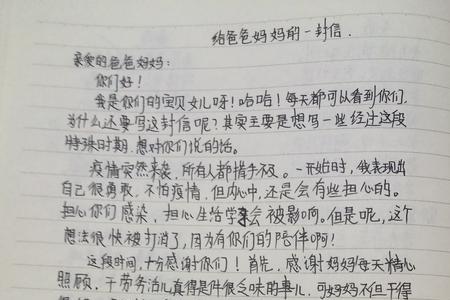 给爸爸妈妈的一封信.
亲爱的爸爸妈妈：
你们好！
我是你们的宝贝女儿呀！哈哈！每天都可以看到你们,
为什么还要写这封信呢？其实主要是想写一些经过这段
特殊时期，想对你们说的话。
疫情突然来袭，所有人都措手不及。一开始时，我表现出
自己很勇敢，不怕疫情，但内心中，还是会有些担心的。
担心你们感染，担心生活学习会被影响。但是呢，这个
想法很快被打消了，因为有你们的陪伴啊！
这段时间，十分感谢你们！首先，感谢妈妈每天精心
照顾，干劳务活儿真得是件很乏味的事儿，可妈妈不但干得